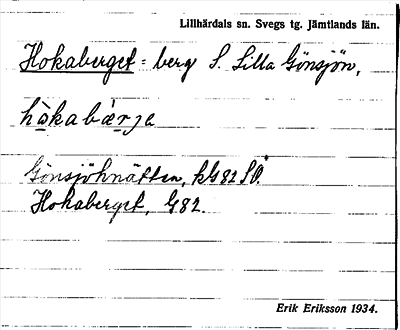 Lillhärdals sn. Svegs tg. Jämtlands län.
Hokaberget = berg S. Lilla Gönsjön,
hòkabær̀je
Gönsjöhnätten, kb 82 SO.
Hokaberget, G82.
Erik Eriksson 1934.